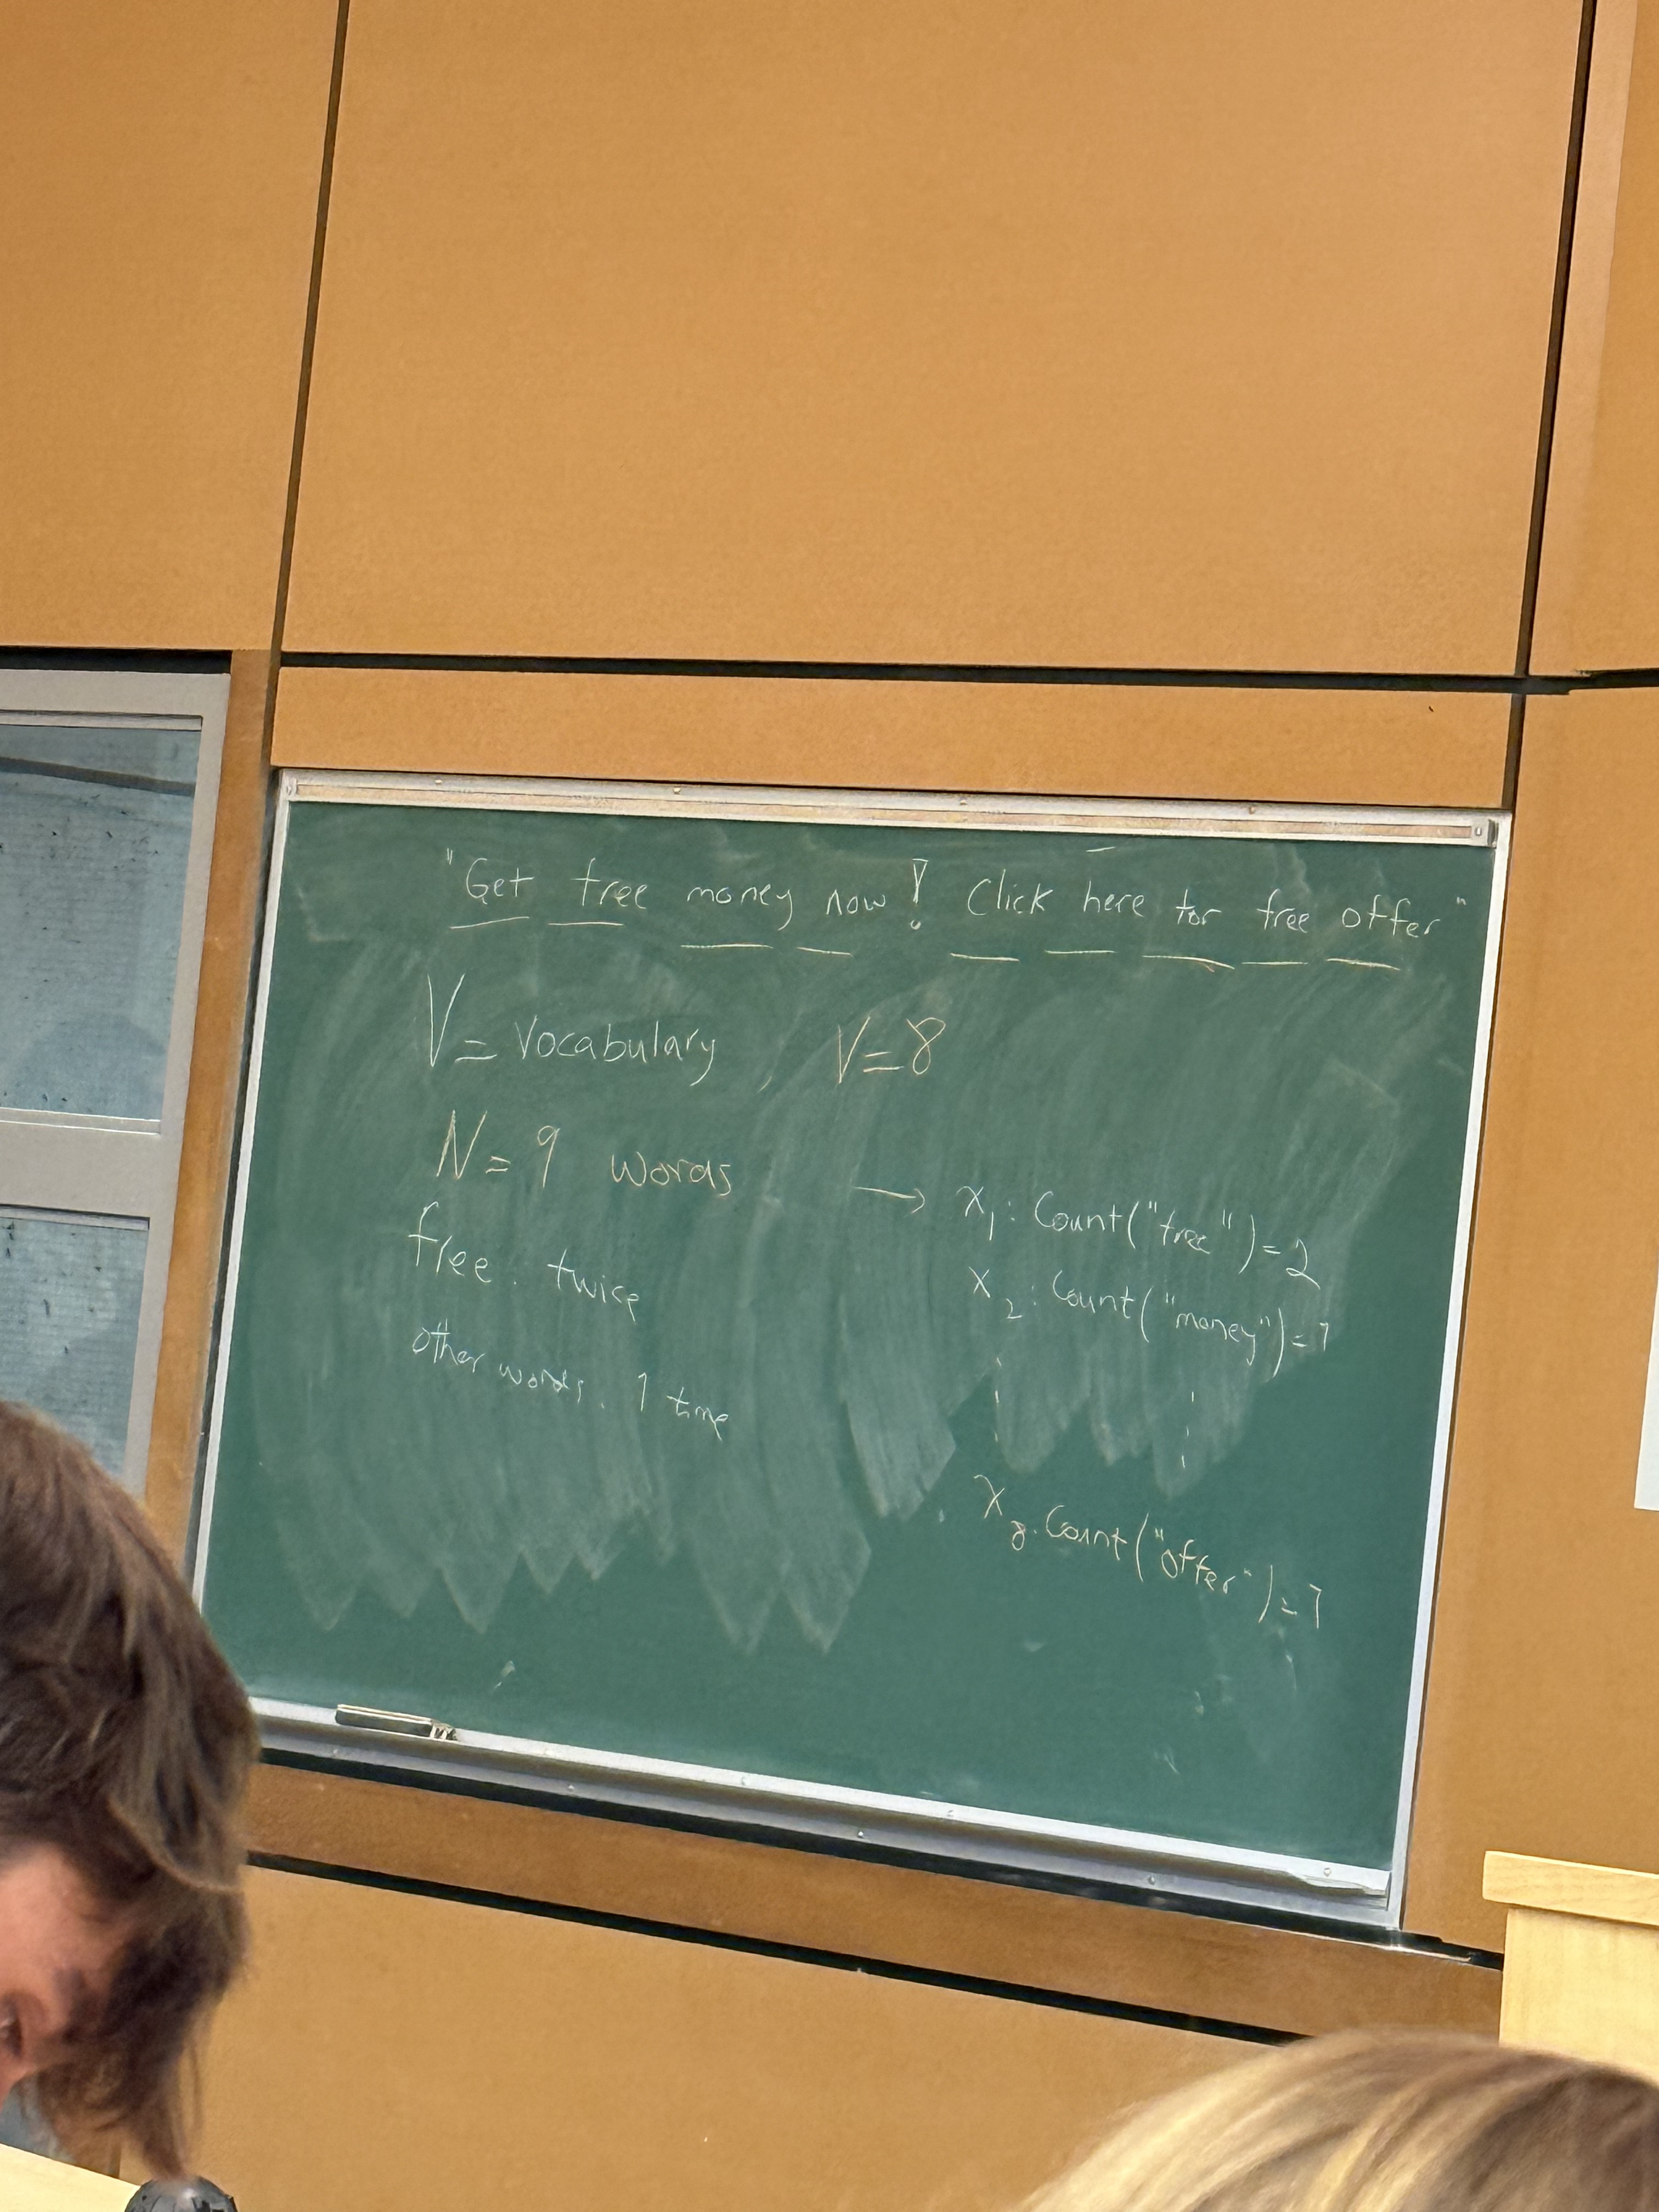 "Get free money now! Click here for free offer"
V = Vocabulary , V=8
N = 9 words
free : twice
other words : 1 time
→ x₁ : Count("free") = 2
x₂ : Count("money") = 1
x₈ : Count("offer") = 1